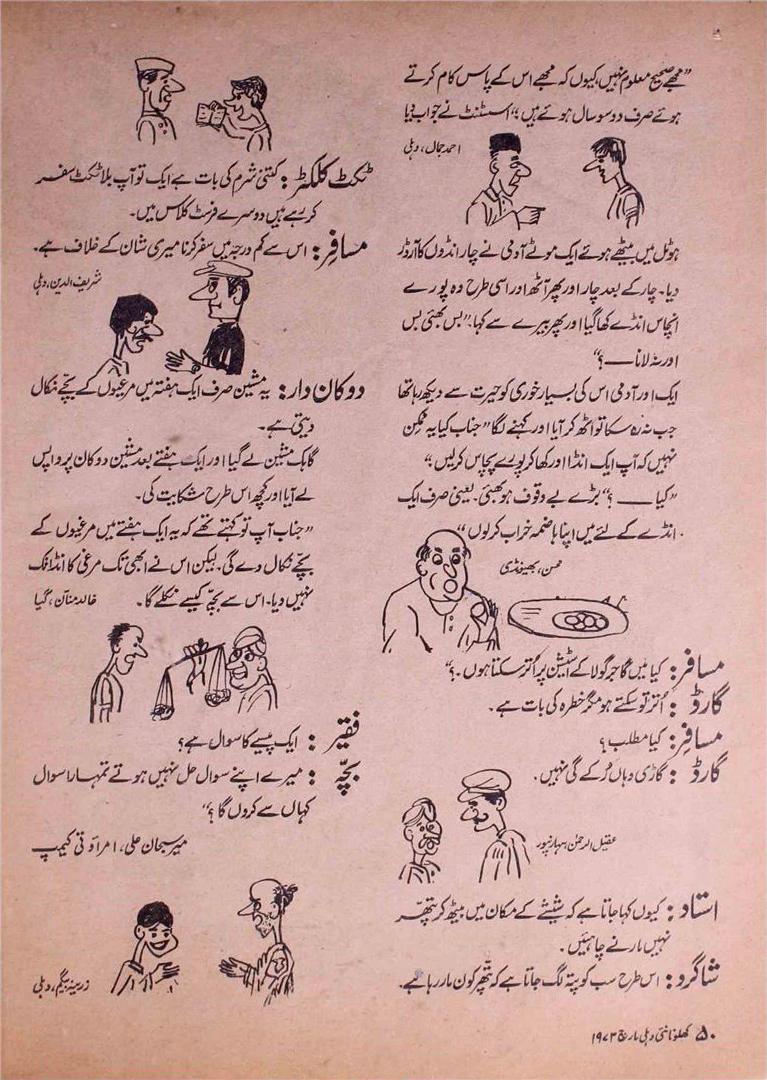 ”مجھے صحیح معلوم نہیں، کیوں کہ مجھے اس کے پاس کام کرتے
ہوئے صرف دو سو سال ہوئے ہیں“ اسسٹنٹ نے جواب دیا
احمد جمال، دہلی
ہوٹل میں بیٹھے ہوئے ایک موٹے آدمی نے چار انڈوں کا آرڈر
دیا۔ چار کے بعد چار اور پھر آٹھ اور اسی طرح وہ پورے
انچاس انڈے کھا گیا اور پھر بیرے سے کہا۔ ”بس بھئی بس
اور نہ لانا ——؟“
ایک اور آدمی اس کی بسیار خوری کو حیرت سے دیکھ رہا تھا
جب نہ رہ سکا تو اٹھ کر آیا اور کہنے لگا ”جناب کیا یہ ممکن
نہیں کہ آپ ایک انڈا اور کھا کر پورے پچاس کر لیں“
”کیا —— ؟“ بڑے بے وقوف ہو بھئی۔ یعنی صرف ایک
انڈے کے لئے میں اپنا ہاضمہ خراب کر لوں“
محسن، بھیونڈی
مسافر: کیا میں گاجر گولا کے اسٹیشن پر اُتر سکتا ہوں۔؟“
گارڈ : اُتر تو سکتے ہو مگر خطرہ کی بات ہے۔
مسافر: کیا مطلب؟
گارڈ : گاڑی وہاں رُکے گی نہیں۔
عقیل الرحمٰن، سہارنپور
استاد : کیوں کہا جاتا ہے کہ شیشے کے مکان میں بیٹھ کر پتھر
نہیں مارنے چاہئیں۔
شاگرد : اس طرح سب کو پتہ لگ جاتا ہے کہ پتھر کون مار رہا ہے۔
ٹکٹ کلکٹر : کتنی شرم کی بات ہے ایک تو آپ بلا ٹکٹ سفر
کر رہے ہیں دوسرے فرسٹ کلاس میں۔
مسافر: اس سے کم درجہ میں سفر کرنا میری شان کے خلاف ہے۔
شریف الدین، دہلی
دوکان دار : یہ مشین صرف ایک ہفتہ میں مرغیوں کے بچے نکال
دیتی ہے۔
گاہک مشین لے گیا اور ایک ہفتے بعد مشین دوکان پر واپس
لے آیا اور کچھ اس طرح شکایت کی۔
”جناب آپ تو کہتے تھے کہ یہ ایک ہفتے میں مرغیوں کے
بچے نکال دے گی۔ لیکن اس نے ابھی تک مرغی کا انڈا تک
نہیں دیا۔ اس سے بچہ کیسے نکلے گا۔ خالد منان، گیا
فقیر : ایک پیسے کا سوال ہے؟
بچّہ : میرے اپنے سوال حل نہیں ہوتے تمہارا سوال
کہاں سے کروں گا؟“
میر سبحان علی، امراؤتی کیمپ
زرمینہ بیگم، دہلی
۵۰ کھلونا نئی دہلی مارچ ۱۹۷۳